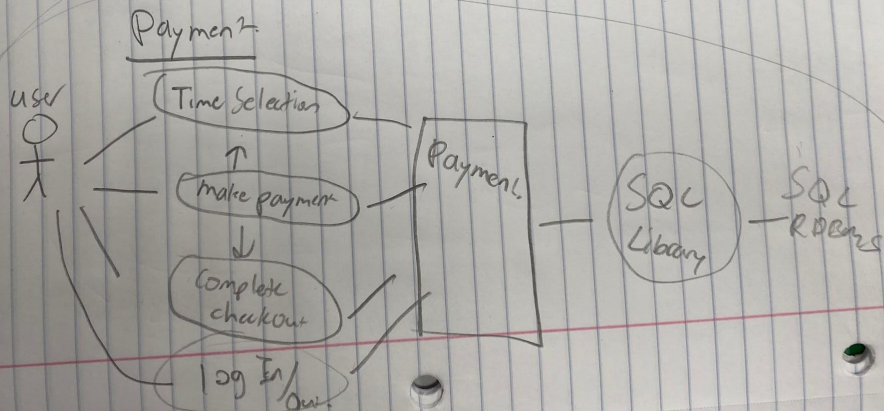 Payment
user
Time Selection
make payment
Complete
checkout
log In/
out
Payment
SQL
Library
SQL
RDBMS